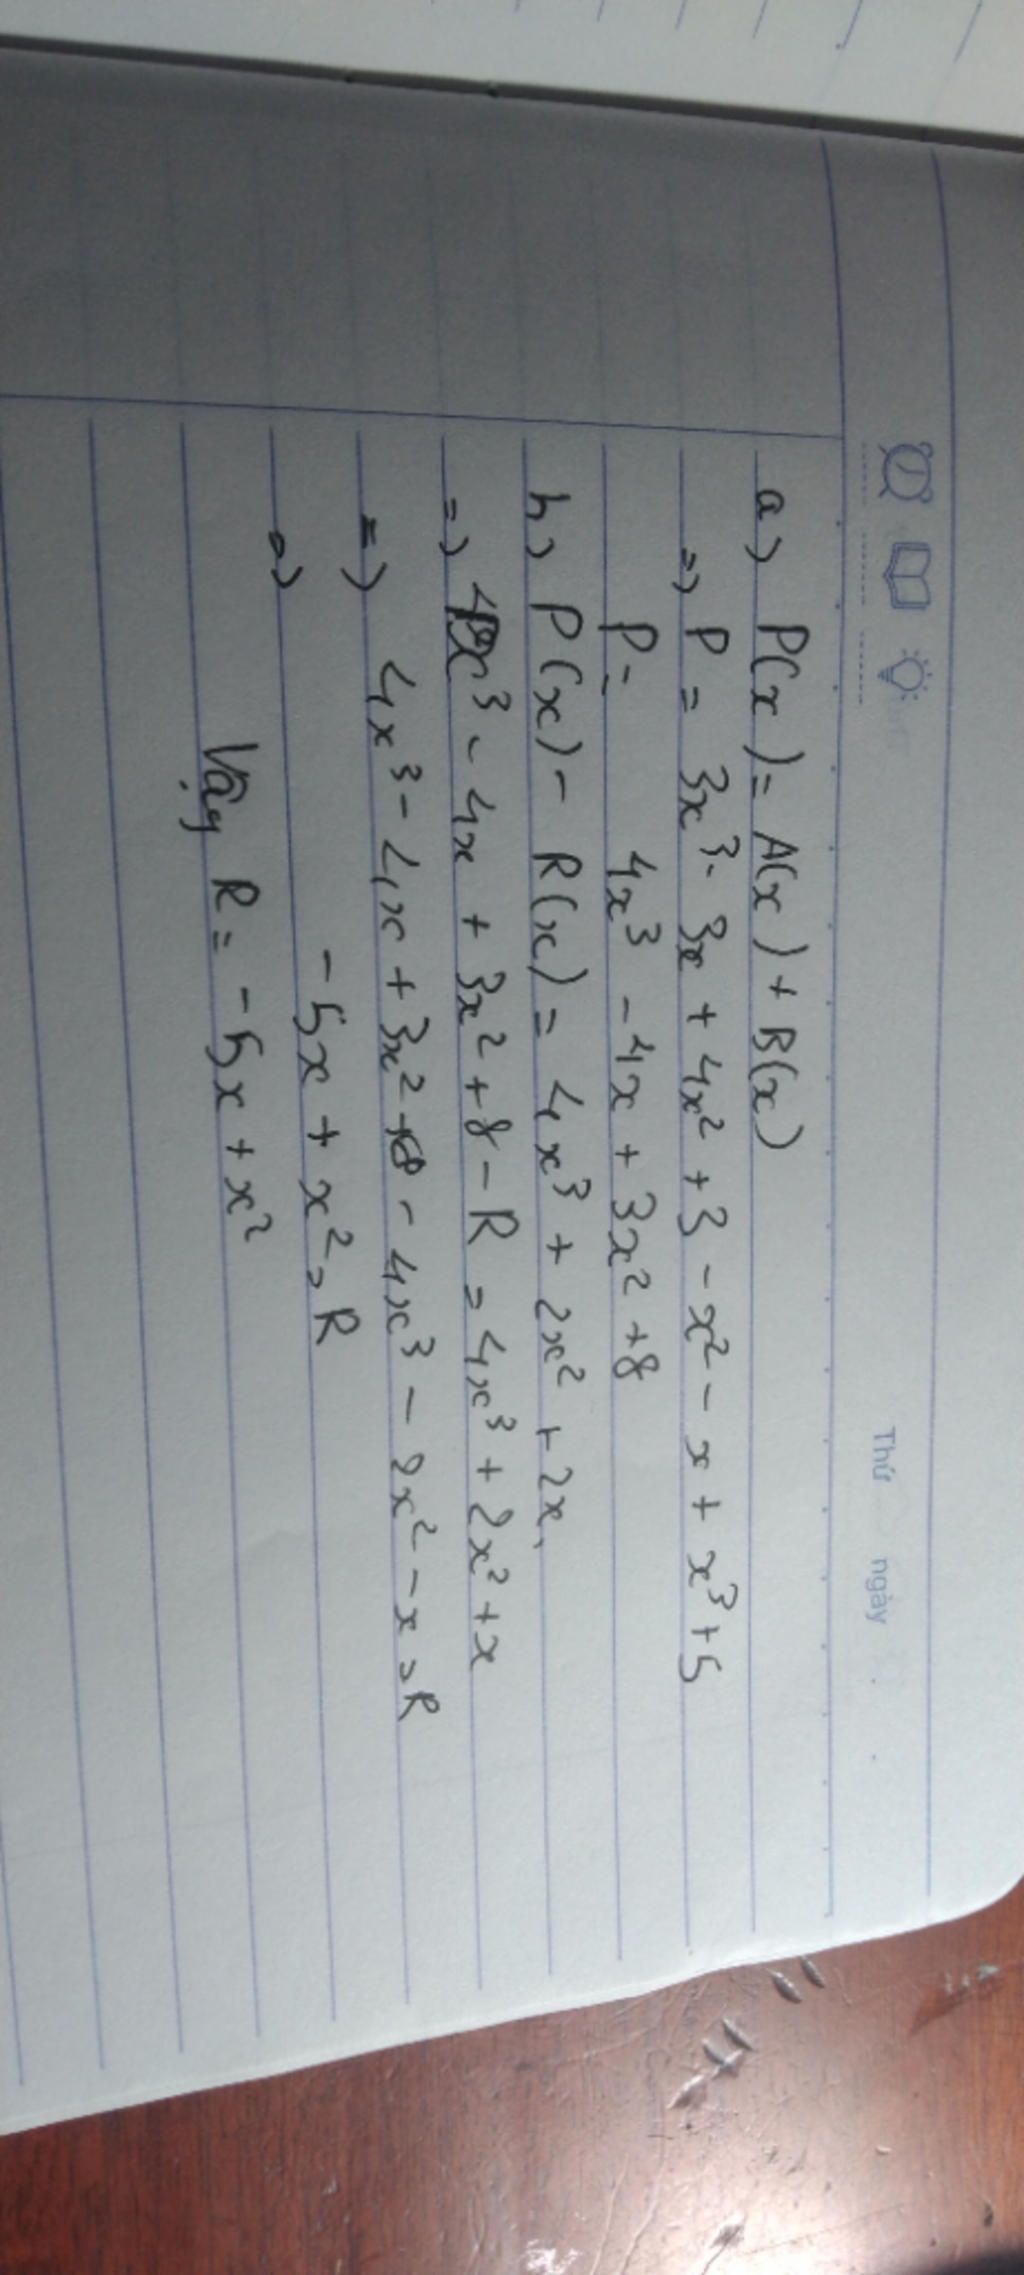 Thứ ngày
a) P(x) = A(x) + B(x)
=) P = 3x³ - 3x + 4x² + 3 - x² - x + x³ + 5
P = 4x³ - 4x + 3x² + 8
b) P(x) - R(x) = 4x³ + 2x² + 2x.
=) 4x³ - 4x + 3x² + 8 - R = 4x³ + 2x² + x
=) 4x³ - 4x + 3x² + 8 - 4x³ - 2x² - x = R
=) - 5x + x² = R
Vậy R = - 5x + x²